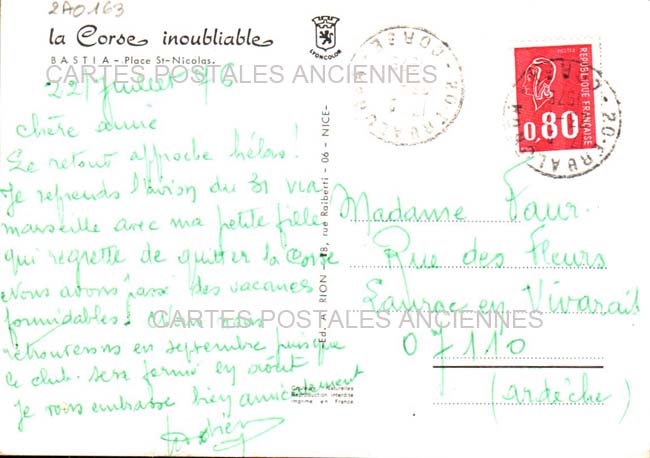 2A0163
la Corse inoubliable
BASTIA - Place St-Nicolas.
LYONCOLOR
CARTES POSTALES ANCIENNES
22 Juillet 76
chère amie
Le retour approche hélas!
Je reprends l'avion du 31 via
marseille avec ma petite fille
qui regrette de quitter la Corse
Nous avons passé des vacances
formidables. Nous nous
retrouverons en septembre puisque
le club sera fermé en août
Je vous embrasse bien amicalement
Ed. A. RION - 18, rue Raiberti - 06 - NICE-
Couleurs Naturelles
Reproduction interdite
Imprimé en France
20 ERBALUNGA
CORSE
REPUBLIQUE FRANÇAISE
0,80
20 ERBALUNGA
CORSE
Madame Faur
Rue des Fleurs
Laurac en Vivarais
07110
(ardèche)
CARTES POSTALES ANCIENNES